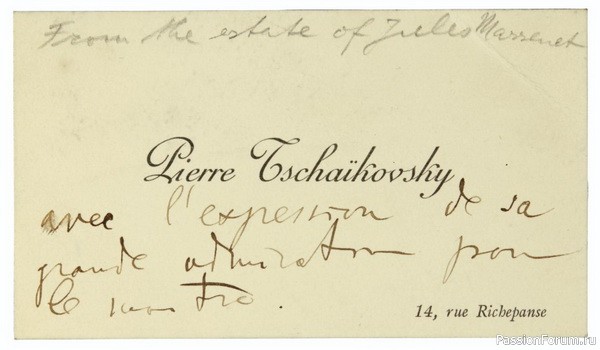 From the estate of Jules Massenet
Pierre Tschaïkovsky
avec l'expession de sa
grande admiration pour
le maître.
14, rue Richepanse
PassionForum.ru